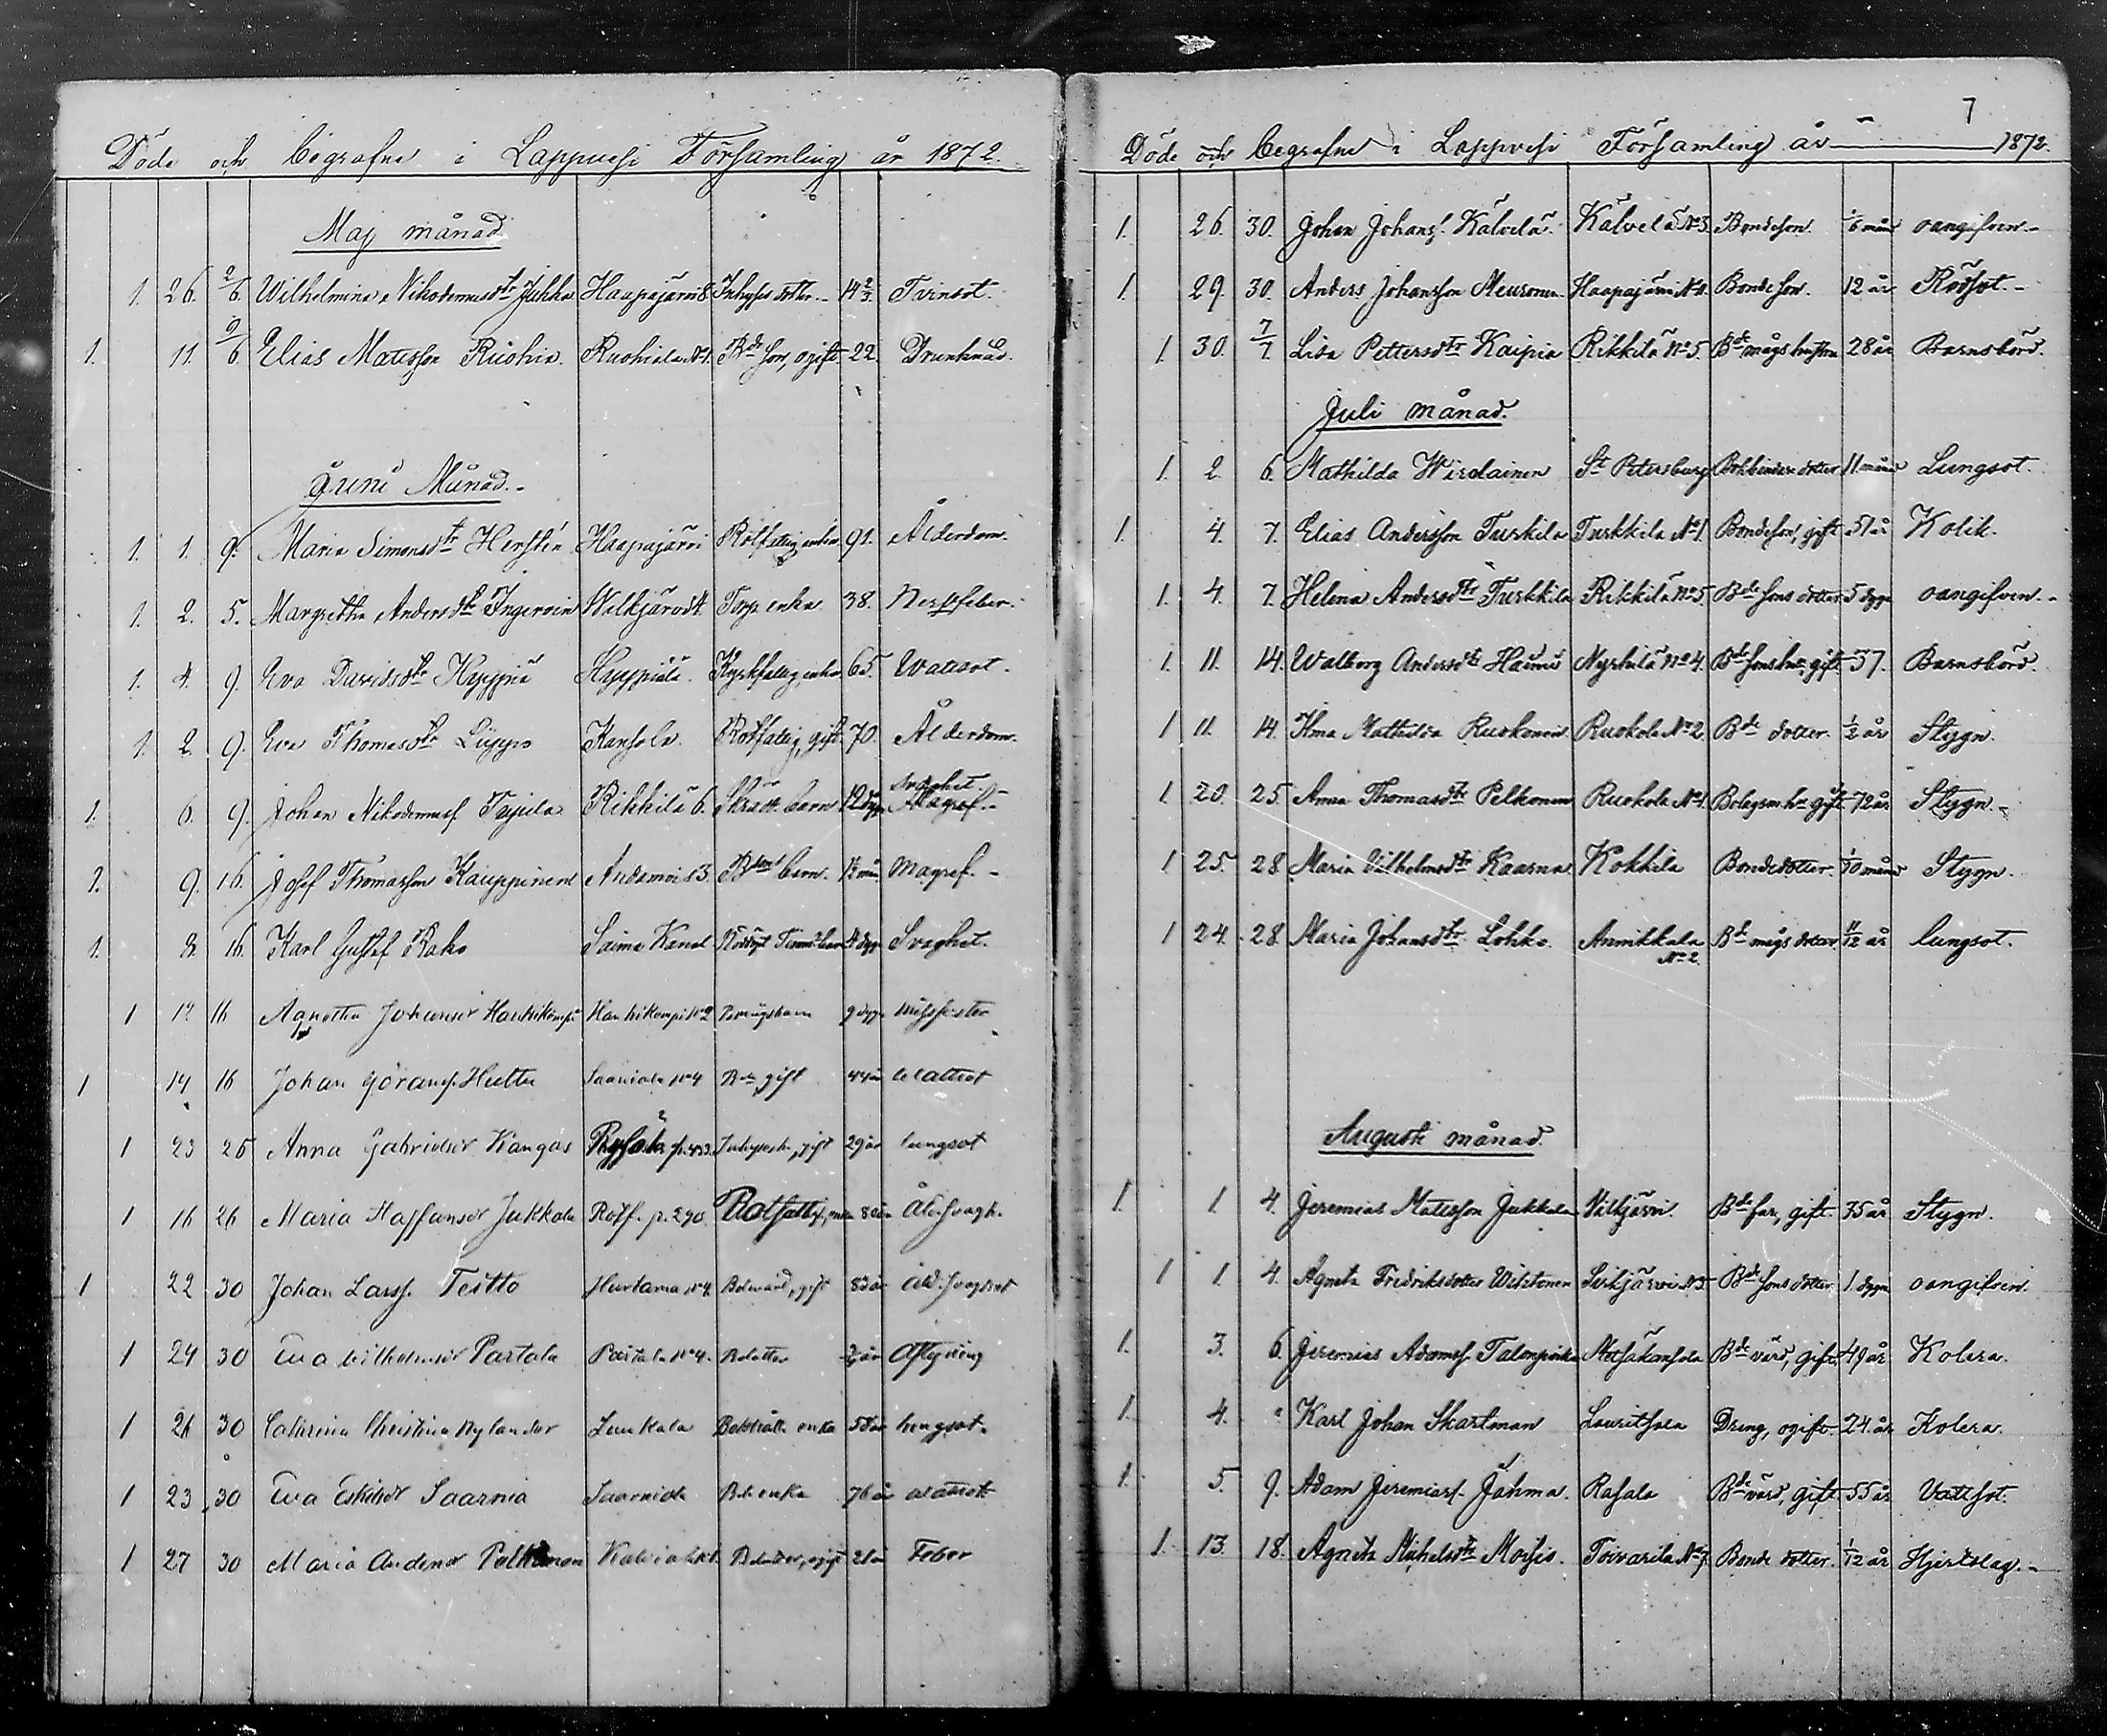 Döde och begrafne i Lappvesi Församling år 1872.
Maj månad
1. 26. 2/6. Wilhelmina Nikodemusdtr Jukka Haapajärvi 8. Inhyses dotter. 14 2/3 Tvinsot.
1. 11. 9/6 Elias Matsson Ruohia. Ruohiala No1. Bde son, ogift 22 Drunknad.
Juni Månad.
1. 1. 9. Maria Simonsdtr Hersten Haapajärvi Rotfattig enka 91. Ålderdom.
1. 2. 5. Margretha Andersdtr Ingeroin Welkjärvi 4. Torp enka 38. Nervfeber.
1. 4. 9. Eva Davidsdtr Hyppiä Hyppiälä. Kyrkfattig, enka 65. Wattsot.
1. 2. 9. Eva Thomasdtr Lyypps Kansola. Rotfattig, gift 70. Ålderdom.
1. 6. 9. Johan Nikodemuss Tujula Rikkilä 6. Skradd. barn 12 dygn Svaghet
1. 9. 16. Josef Thomasson Kauppinen 3. barn. mån Magref.
1. 8. 16. Karl Gustaf Rako Saima Kanal 4 dyg Svaghet.
1 12 16 Agnetha Johansdr Hanhikempi Hanhikempi No2 9 dygn missfoster
1 14 16 Johan Göranss. Huttu Saaniala No4 Bde gift 44 år Wattsot
1 23 25 Anna Gabrielsdr Kangas gift 29 år lungsot
1 16 26 Maria Staffansdr Jukkala Rotf. p. 290 Rotfattig, enka Åld.svagh.
1 22 30 Johan Larss. Teitto Hurtama No4. gift 83 år åld.svaghet
1 24 30 Eva Wilhelmsdr Partala Partala No4. Bdotter år
1 26 30 Cathrina Christina Nylander Laukala enka lungsot.
1 23 30 Eva Eskilsdr Saarnia Saarniala Bde enka 76 år Wattsot
1 27 30 Maria Andersdr Pelkonen ogift 21 år Feber
7
Döde och begrafne i Lappvesi Församling år 1872.
1. 26. 30. Johan Johanss. Kälvelä. Kälvelä No3. Bondeson. mån oangifven.
1. 29. 30. Anders Johansson Meuronen. Haapajärvi No Bondeson. 12 år Rödsot.
1 30. 7/7. Lisa Pettersdtr Kaipia Rikkilä No5. Bde mågs hustru 28 år Barnsbörd.
Juli månad.
1. 2. 6. Mathilda Wirolainen St Petersburg Bokbindare dotter 11 mån Lungsot.
1. 4. 7. Elias Andersson Turkila Turkkila No1. Bondeson, gift 51 år Kolik.
1. 4. 7. Helena Andersdtr Turkkila Rikkilä No5. Bde sons dotter 5 dygn oangifven.
1. 11. 14. Walborg Andersdtr Hannus Nyrhilä No4. Bde sons hu, gift 37. Barnsbörd.
1 11. 14. Ilma Mathilda Ruokonen Ruokola No2. Bde dotter. 1/2 år Stygn.
1 20. 25. Anna Thomasdtr Pelkonen Ruokola No1. Bolagsm. hu gift 72 år Stygn.
1 25. 28 Maria Vilhelmsdtr Kaarna Kokkila Bondedotter. månad Stygn.
1 24. 28 Maria Johansdtr Lohko. Armikkala No2. Bde mågs dotter 11/12 år lungsot.
Augusti månad.
1. 1 4. Jeremias Matsson Jukkala Vilkjärvi. Bde far, gift. 35 år Stygn.
1 1 4. Agneta Fredriksdotter Wilstonen Sirkjärvi No3. Bde sons dotter 1. dygn oangifven.
1. 3. 6. Jeremias Adamss. Talonpoika Metsäkansola Bde värd, gift. 49 år Kolera.
1. 4. " Karl Johan Skartman Lauritsala Dreng, ogift 24. år Kolera.
1. 5 9. Adam Jeremiass. Jähma. Rasala Bde värd, gift. 55 år Vattsot.
1. 13. 18. Agneta Michelsdtr Moisio. Toivarila No7. Bonde dotter. 1/12 år Hjertslag.